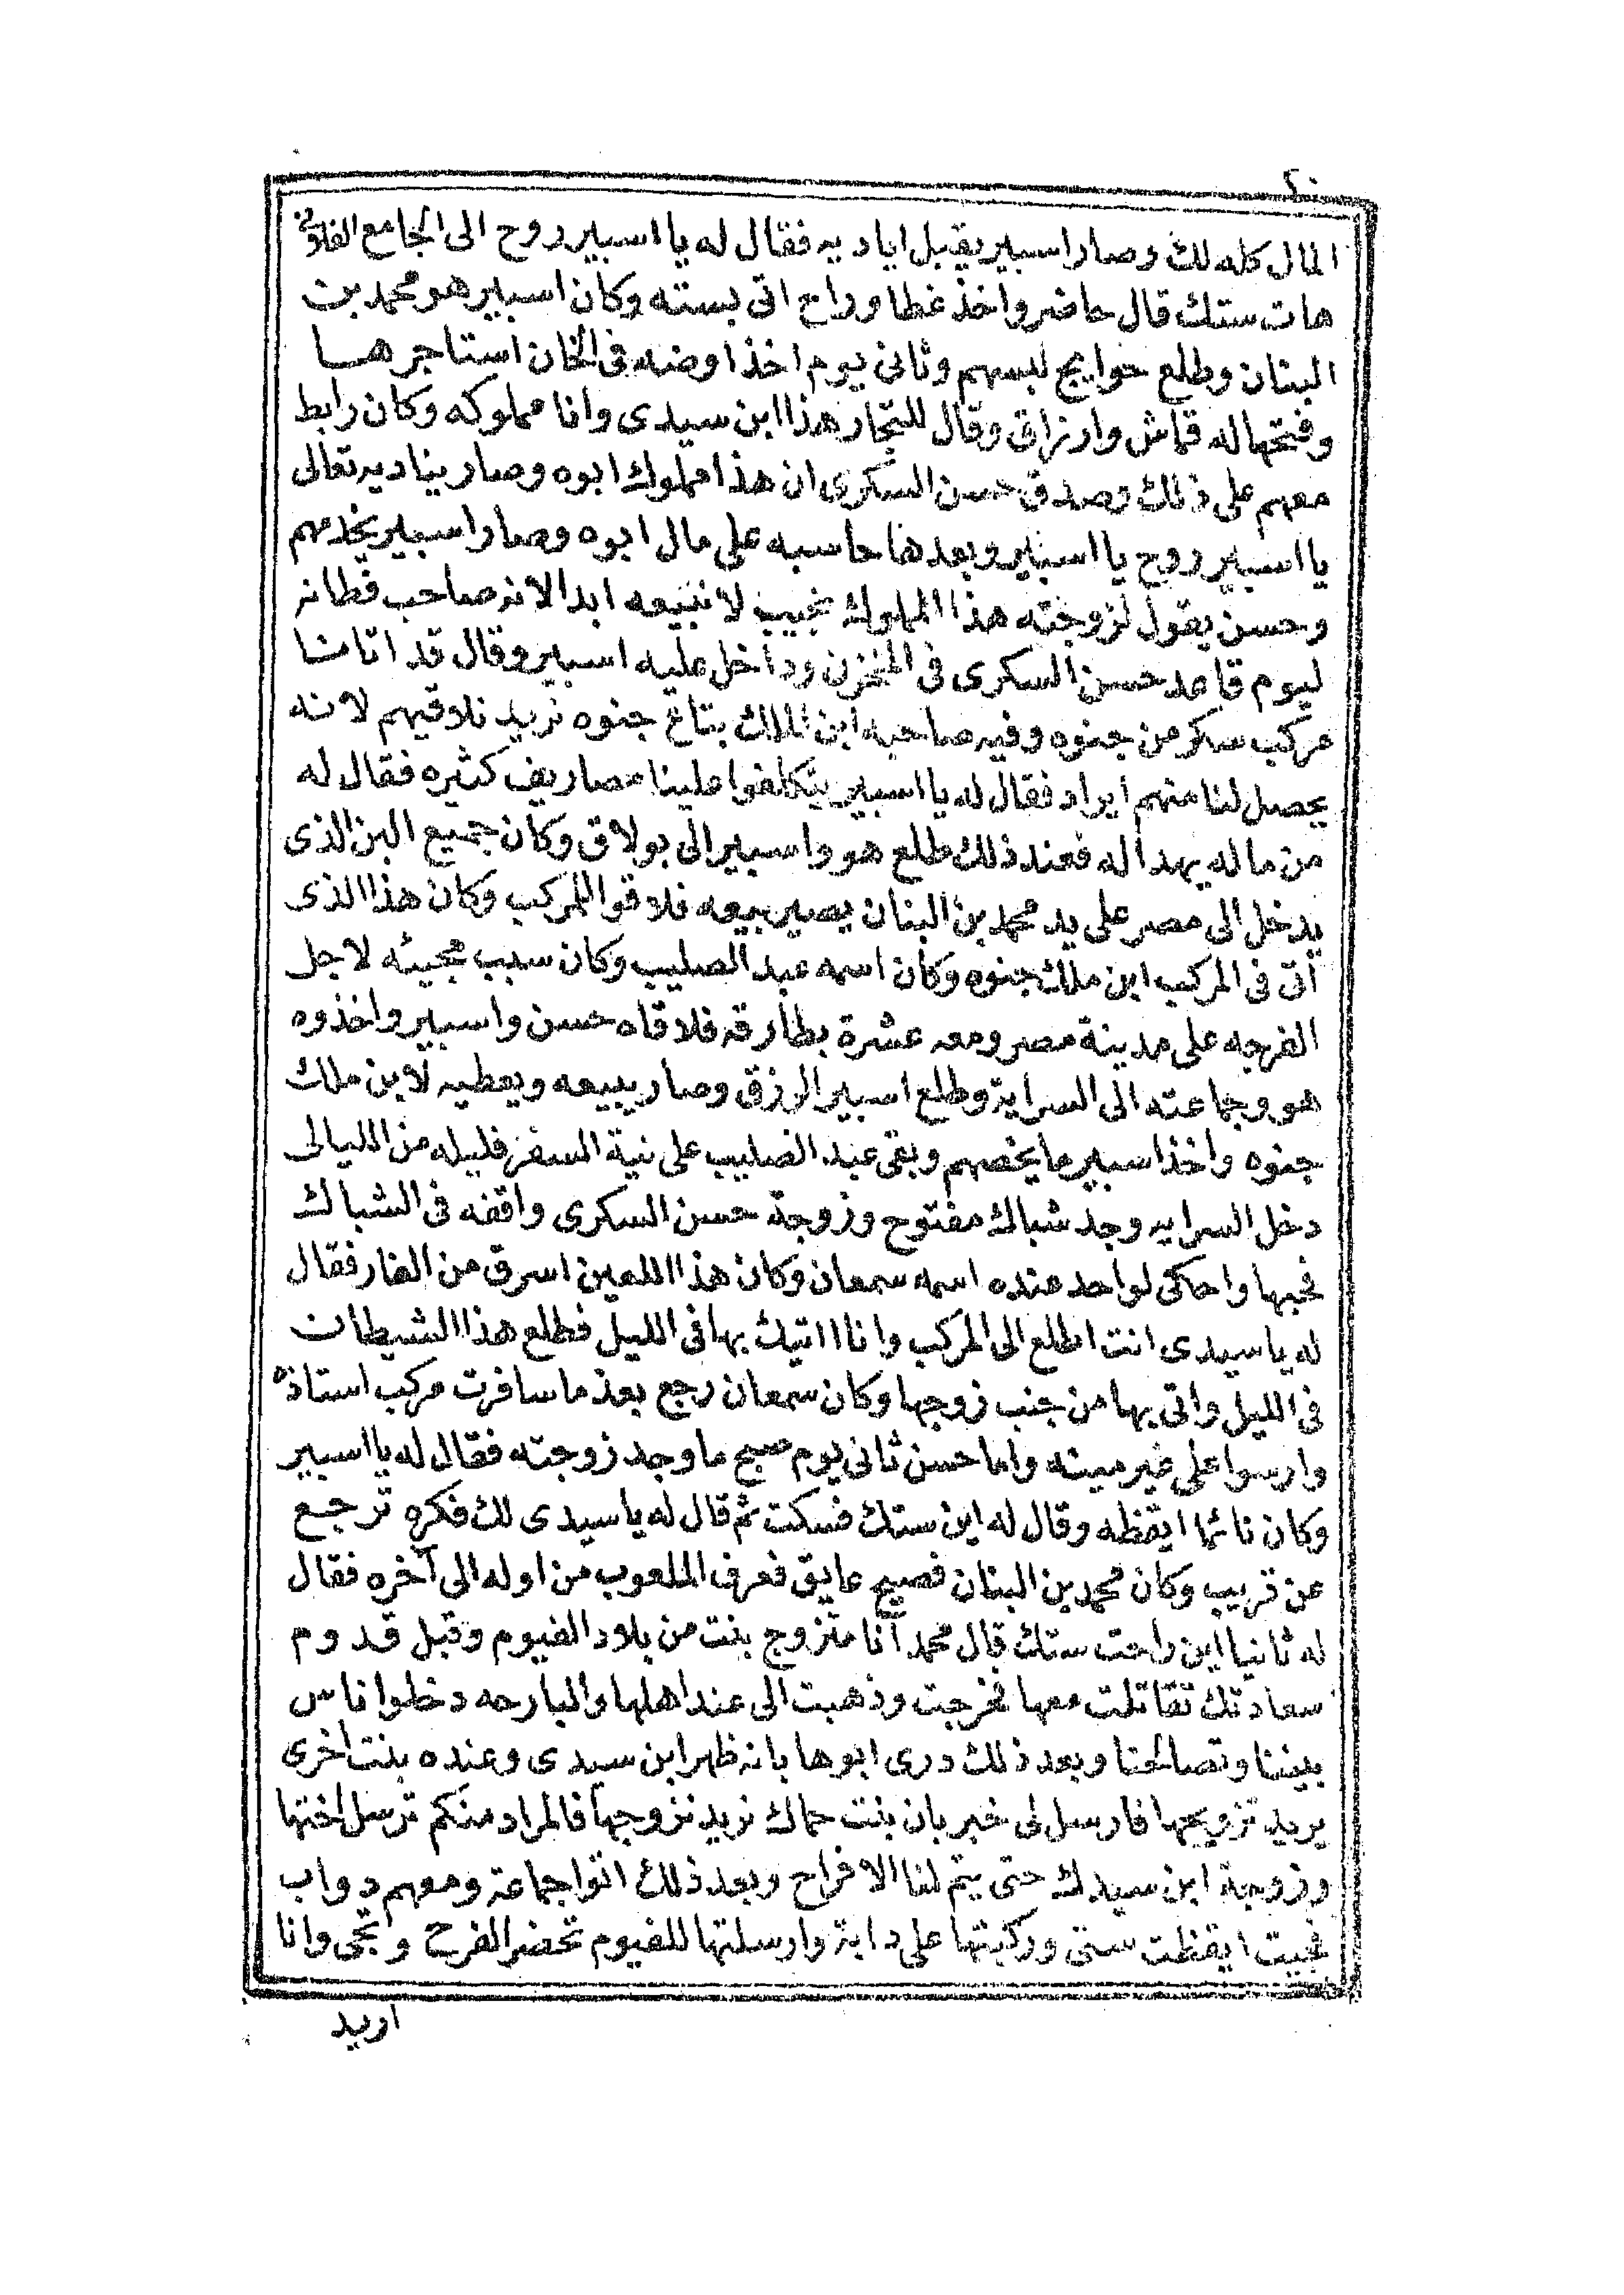 المال كله لك وصار اسبير يقبل اياديه فقال له يا اسبير روح الى الجامع الفلاني
هات ستك قال حاضر واخذ غطا وراح اتى بسته وكان اسبير هو محمد بن
البنان وطلع حوايج لبسهم وثانى يوم اخذ اوضه فى الخان استاجرها
وفتحها له قماش وارزاق وقال للتجار هذا ابن سيدى وانا مملوكه وكان رابط
معهم على ذلك وصدق حسن السكرى ان هذا مملوك ابوه وصار يناديه تعالى
يا اسبير روح يا اسبير وبعدها حاسبه على مال ابوه وصار اسبير يخدمهم
وحسن يقول لزوجته هذا المملوك نجيب لا نبيعه ابدا لانه صاحب فطانه
ليوم قاعد حسن السكرى فى المخزن وداخل عليه اسبير وقال قد اتانا
مركب سكر من جنوه وفيه صاحبه ابن الملك بتاع جنوه نريد نلاقيهم لانه
يحصل لنا منهم ايراد فقال له يا اسبير يتكلفوا علينا مصاريف كثيره فقال له
من ماله يهدا له فعند ذلك طلع هو واسبير الى بولاق وكان جميع البن الذى
يدخل الى مصر على يد محمد بن البنان يصير بيعه فلاقوا المركب وكان هذا الذى
أتى فى المركب ابن ملك جنوه وكان اسمه عبد الصليب وكان سبب مجيئه لاجل
الفرجه على مدينة مصر ومعه عشرة بطارقه فلاقاه حسن واسبير واخذوه
هو وجماعته الى السراية وطلع اسبير الرزق وصار يبيعه ويعطيه لابن ملك
جنوه واخذ اسبير ما يخصهم وبقى عبد الصليب على نية السفر فليله من الليالى
دخل السرايه وجد شباك مفتوح وزوجة حسن السكرى واقفه فى الشباك
فحبها واحكى لواحد عنده اسمه سمعان وكان هذا اللعين اسرق من الفار فقال
له يا سيدى انت اطلع الى المركب وانا اتيك بها فى الليل فطلع هذا الشيطان
فى الليل واتى بها من جنب زوجها وكان سمعان رجع بعد ما سافرت مركب استاذه
وارسوا على غير مينه واما حسن ثانى يوم صبح ما وجد زوجته فقال له يا اسبير
وكان نائما ايقظه وقال له اين ستك فسكت ثم قال له يا سيدى لك فكره ترجع
عن قريب وكان محمد بن البنان فصيح عايق فعرف الملعوب من اوله الى آخره فقال
له ثانيا اين راحت ستك قال محمد أنا متزوج بنت من بلاد الفيوم وقبل قدوم
سعادتك تقاتلت معها فخرجت وذهبت الى عند اهلها والبارحه دخلوا ناس
بيننا وتصالحنا وبعد ذلك درى ابوها بانه ظهر ابن سيدى وعنده بنت اخرى
يريد تزويجها فارسل لى خبر بان بنت حماك نريد نزوجها فالمراد منكم ترسل اختها
وزوجة ابن سيدك حتى يتم لنا الافراح وبعد ذلك اتوا جماعة ومعهم دواب
فجيت ايقظت ستى وركبتها على دابة وارسلتها للفيوم تحضر الفرح وتجى وانا
اريد